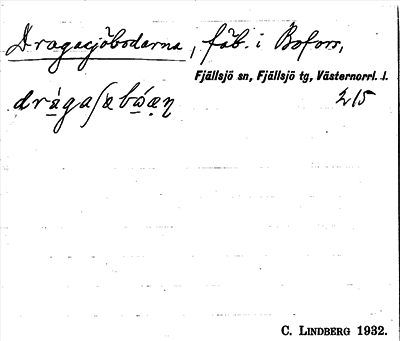 Dragasjöbodarna, fäb. i Bofors,
Fjällsjö sn, Fjällsjö tg, Västernorrl. l.
2/5
C. LINDBERG 1932.